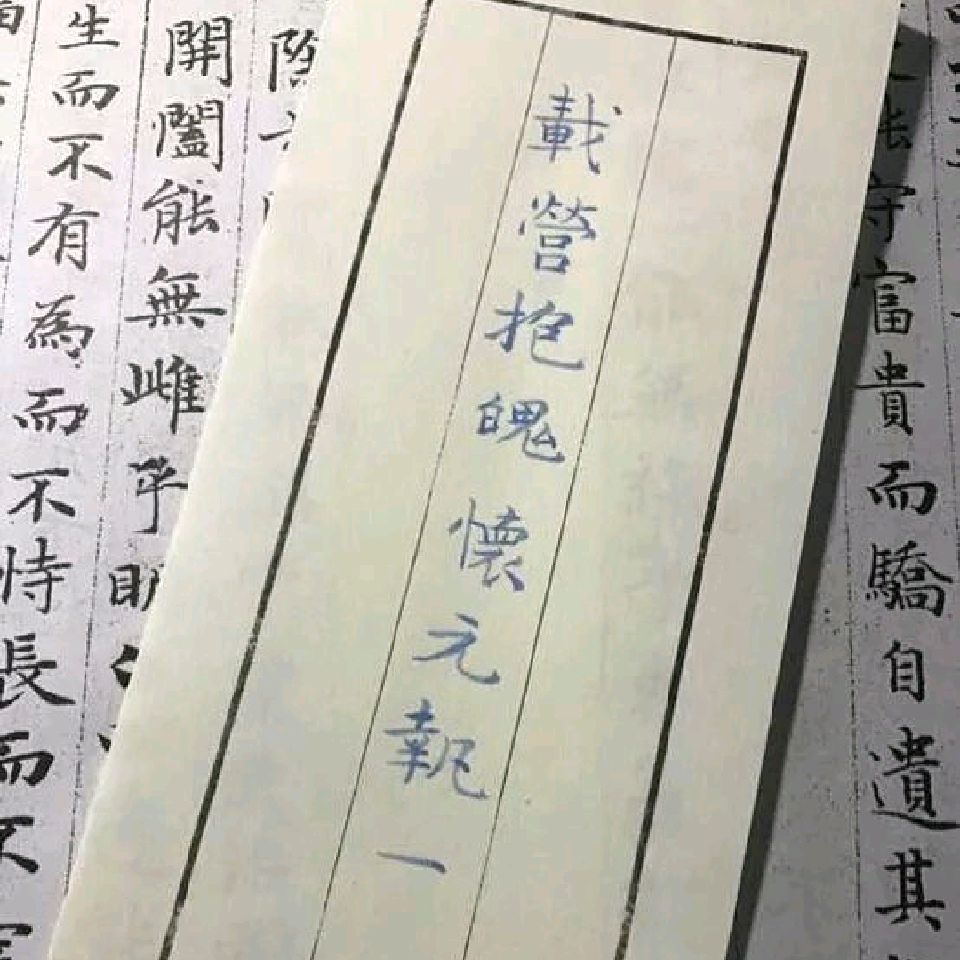 守富貴而驕自遺其
載營抱魄懷元執一
開闔能無雌乎明白
生而不有為而不恃長而不宰